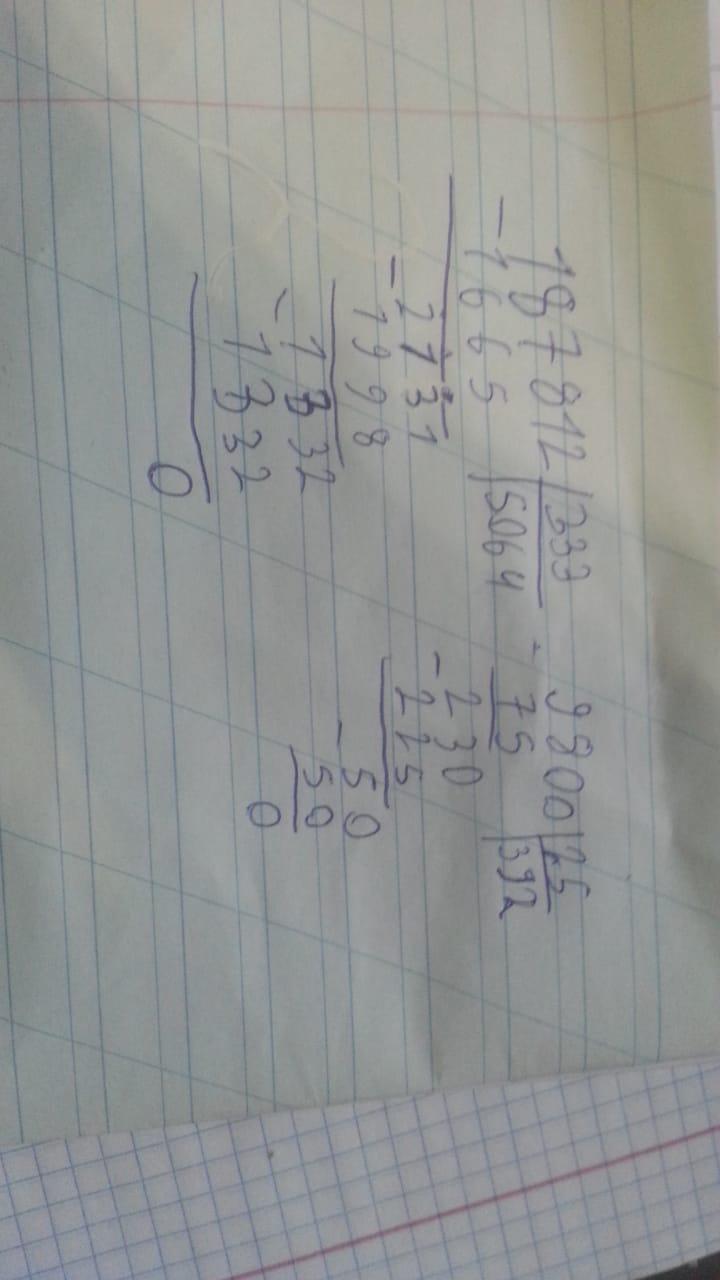 187812 333
- 1665 5064
- 2131
1998
- 1332
1332
0
- 9800 25
75 392
- 230
225
- 50
50
0